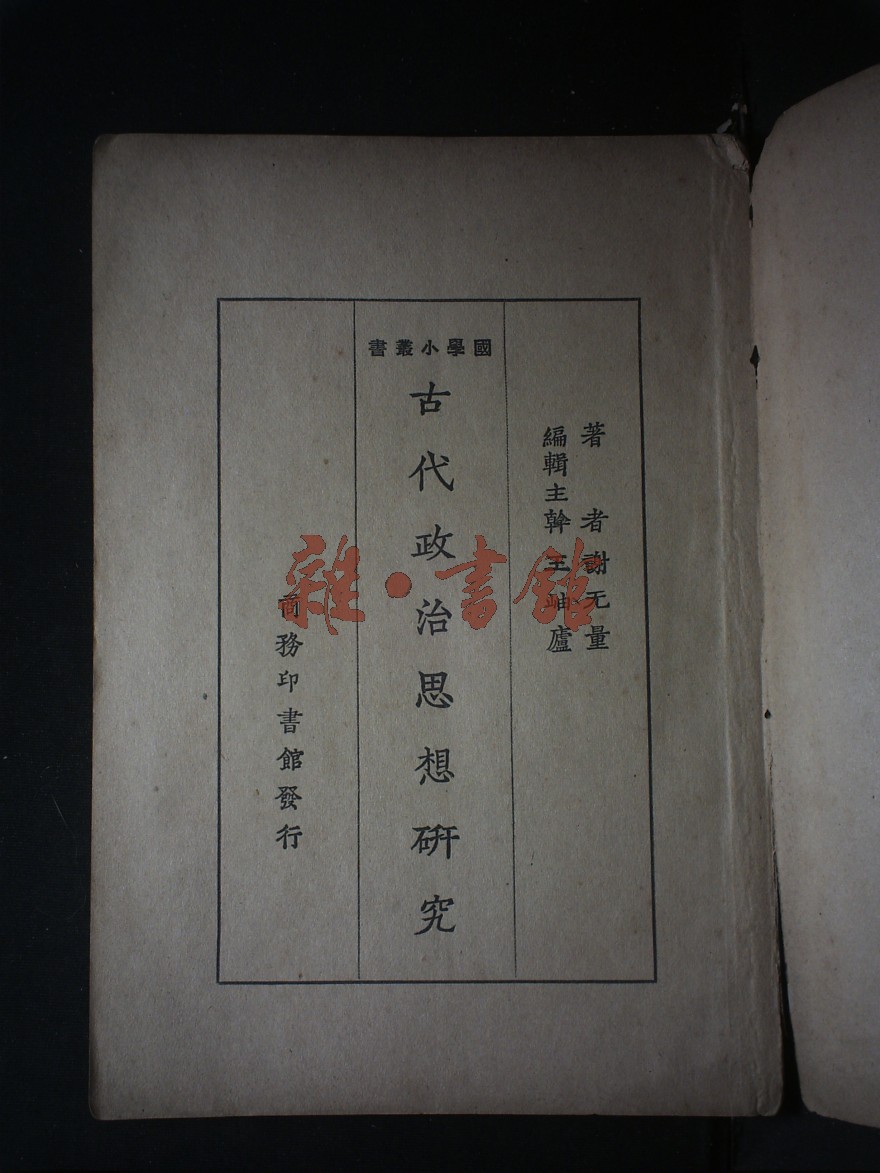 著者謝无量
編輯主幹王岫廬
國學小叢書
古代政治思想研究
商務印書館發行
雜·書館